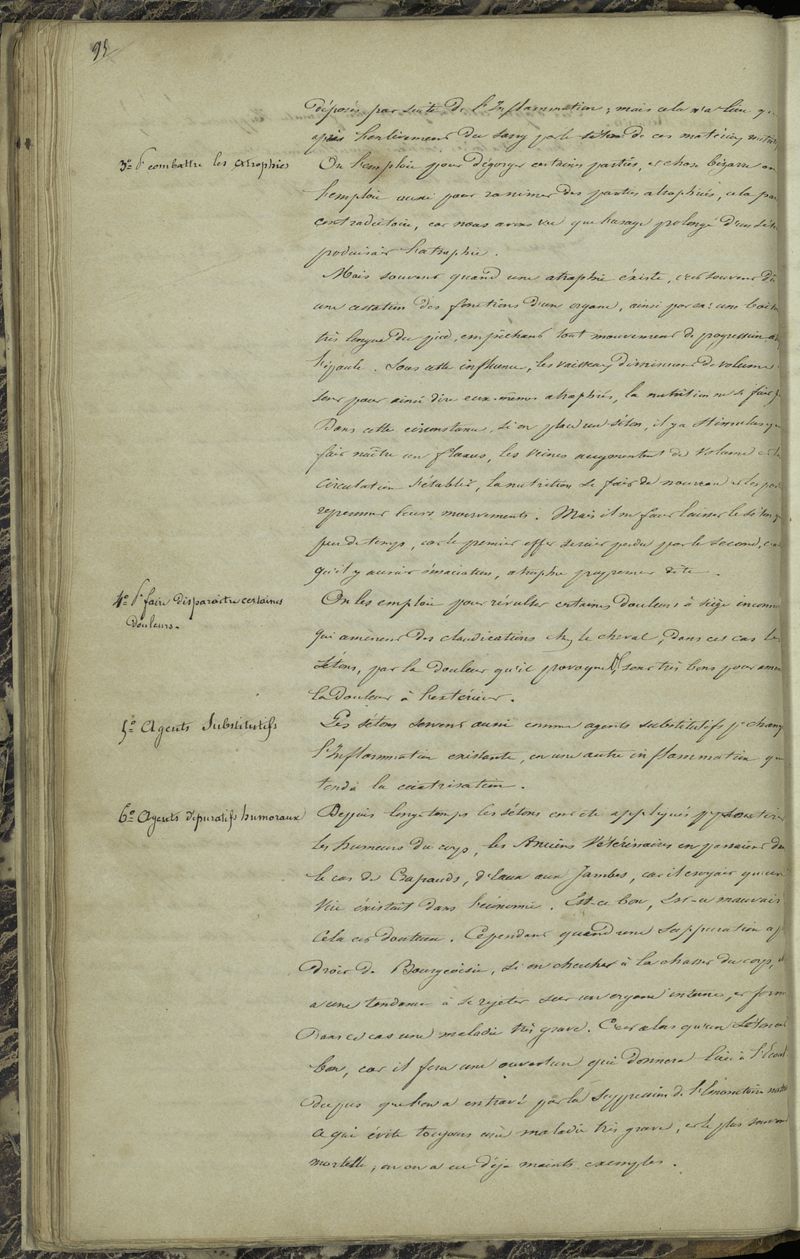 92
déposés par suite de l'Inflammation; mais cela n'a lieu
après l'enlèvement du sang par le séton de ces matériaux
3º Pr combattre les atrophies
On l'emploie pour dégorger certaines parties, et chose bizarre on
l'emploie aussi pour ranimer des parties atrophiées, cela
contradictoire, car nous avons vu que l'usage prolongé d'un
produisait l'atrophie.
Mais souvent quand une atrophie éxiste, c'est souvent
une cessation des fonctions d'un organe, ainsi par ex: une
très longue du pied, empêchant tout mouvement de progression
l'épaule. Sous cette influence, les vaisseaux diminuent de volume
sont pour ainsi dire eux-mêmes atrophiés, la nutrition ne se fait
Dans cette circonstance, si on place un séton, il y a stimulus
fait naître un fluxus, les veines augmentent de volume et
circulation s'établit, la nutrition se fait de nouveau et les
reprennent leurs mouvements. Mais il ne faut laisser le séton
peu de temps, car le premier effet serait perdu par le second,
qu'il y aurait émaciation, atrophie proprement dite.
4º Pr faire disparaître certaines
douleurs.
On les emploie pour révulser certaines douleurs à siège
qui amènent des claudications chez le cheval, dans ces cas les
sétons, par la douleur qu'ils provoquent, sont très bons pour
la douleur à l'extérieur.
5º Agents Substitutifs
Les sétons servent aussi comme agents substitutifs pr
l'Inflammation existante, en une autre inflammation
tend à la cicatrisation.
6º Agents dépuratifs humoraux
Depuis longtemps les sétons ont été appliqués pr
les humeurs du corps, les Anciens Vétérinaires en
le cas de Crapauds, d'eaux aux Jambes, car il croyait qu'un
vice éxistait dans l'économie. Est-ce bon, Est-ce mauvais
Cela est douteux. Cependant quand une suppuration a
droit de Bourgeoisie, si on cherche à la chasser du corps,
a une tendance à se rejeter sur un organe interne, et
Dans ce cas une maladie très grave. C'est alors qu'un séton
bon, car il fera une ouverture qui donnera lieu à
du pus que l'on a entravé par la suppression de l'Emonctoire
ce qui évite toujours une maladie très grave, et le plus souvent
mortelle, on en a eu déjà maints exemples.